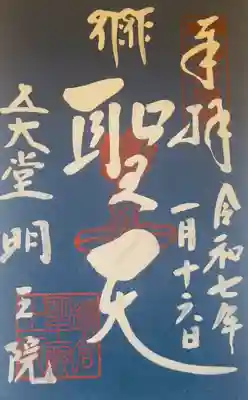 奉拝
令和七年
一月十六日
聖天
五大堂 明王院